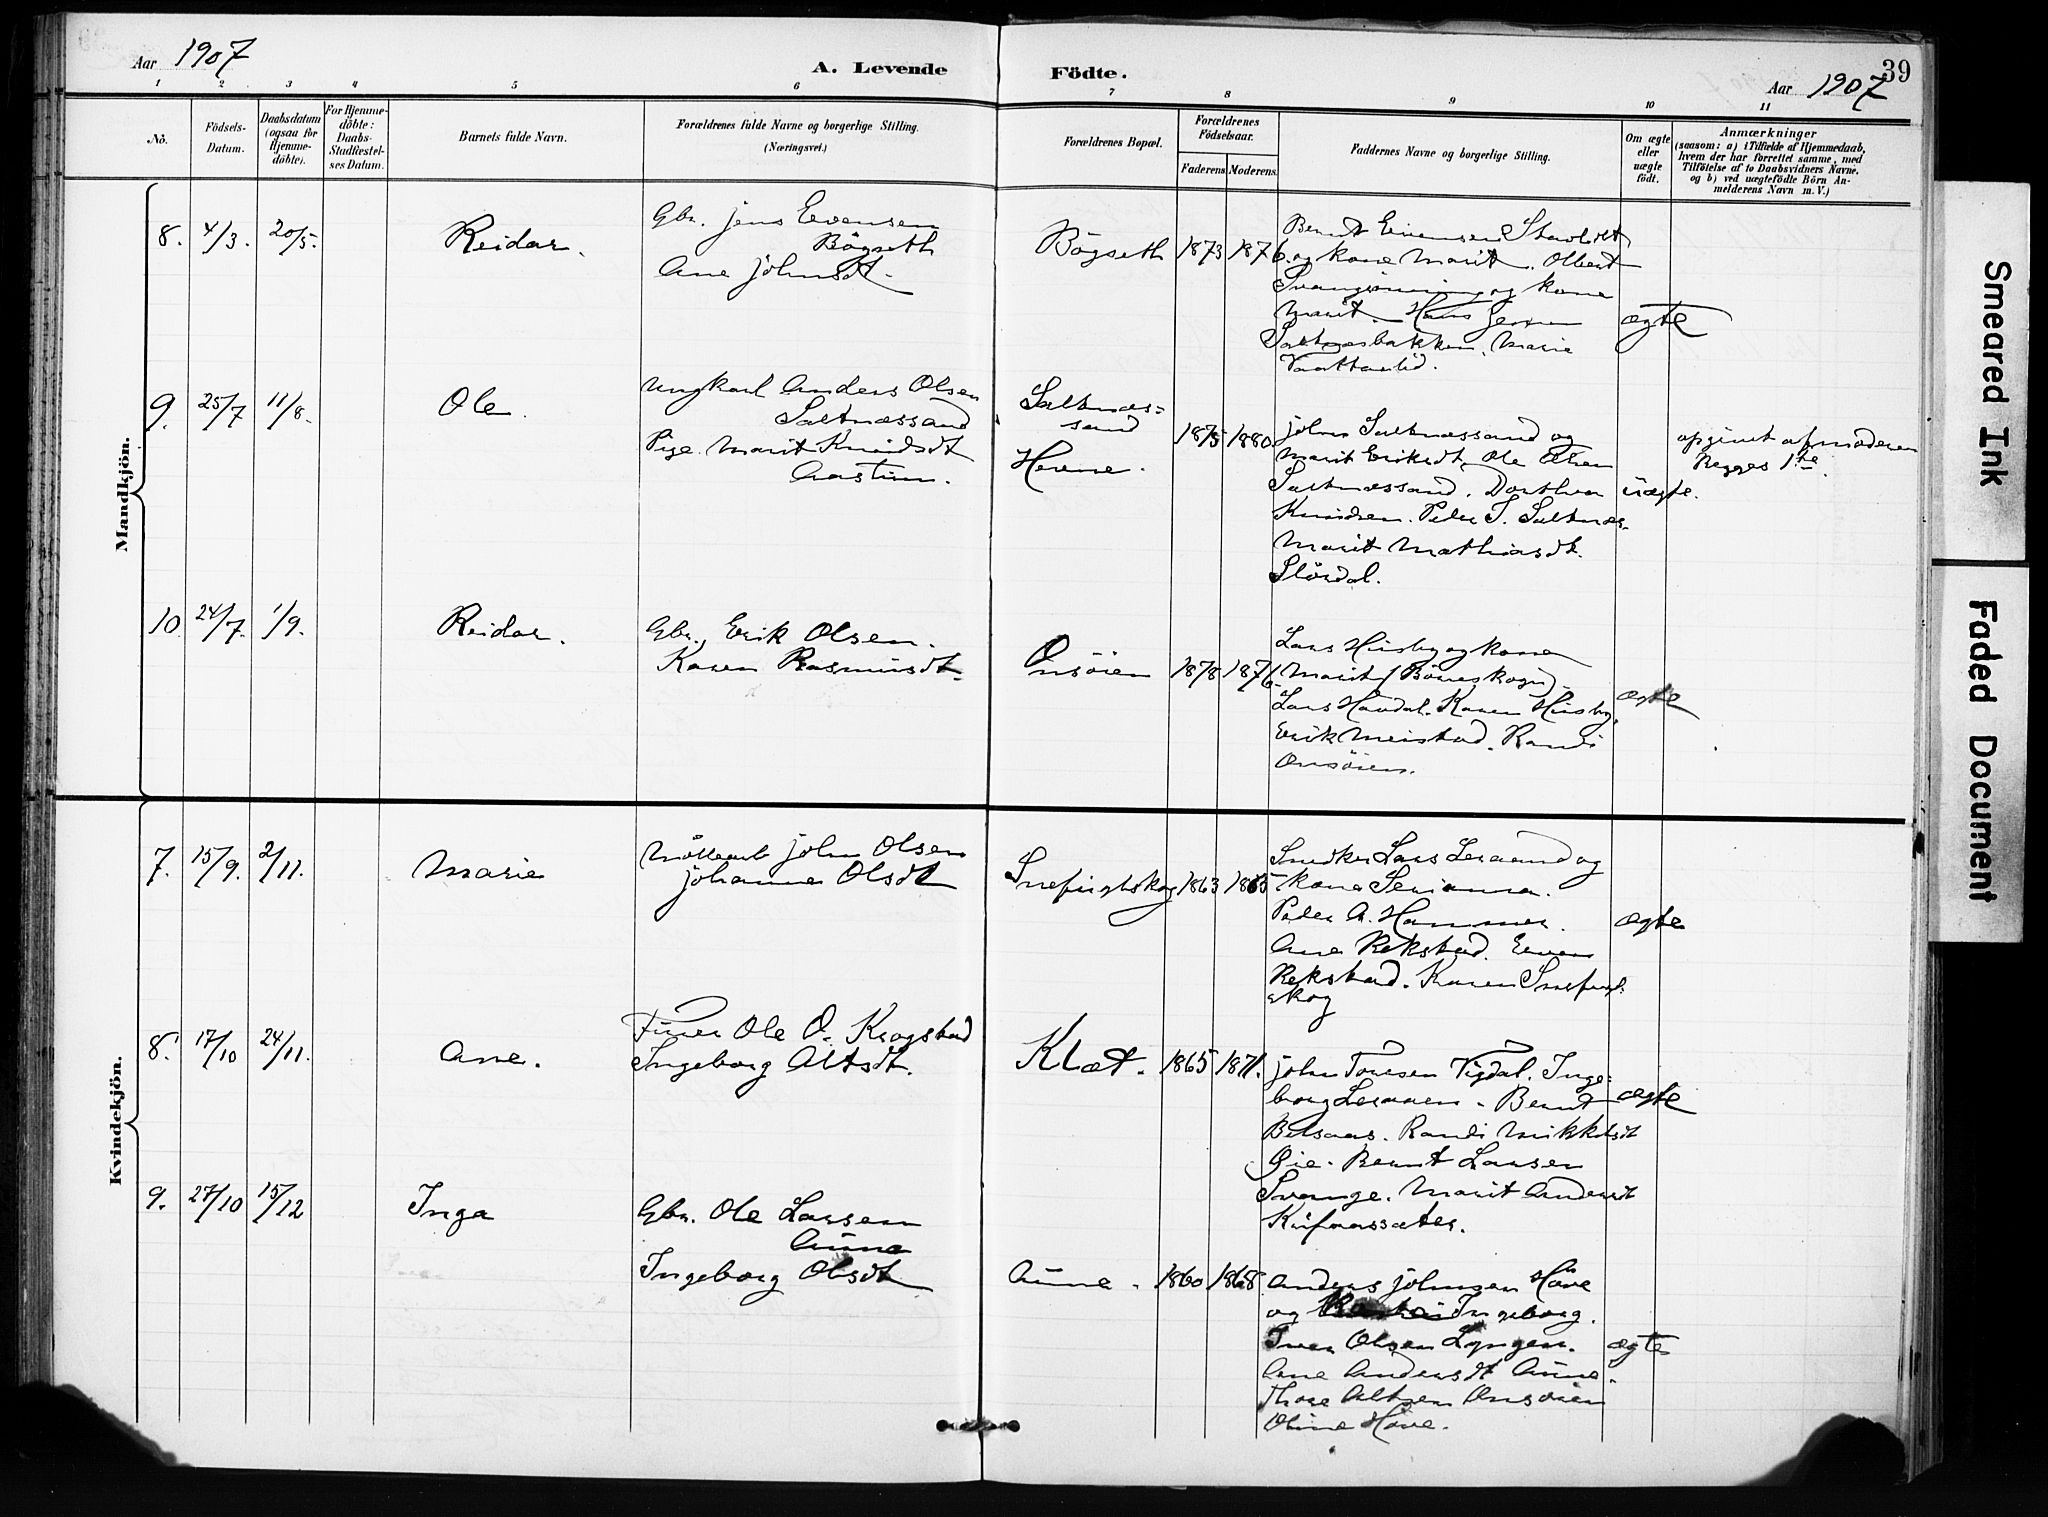 Aar 1907
A. Levende
Födte.
39
Aar 1907
1 2 3 4 5 6 7 8 9 10 11
No.
Födsels-
Datum.
Daabsdatum
(ogsaa for
Hjemme-
döbte).
For Hjemme-
döbte:
Daabs-
Stadfæstel-
ses Datum.
Barnets fulde Navn.
Forældrenes fulde Navne og borgerlige Stilling.
(Næringsvei.)
Forældrenes Bopæl.
Forældrenes
Födselsaar.
Faderens. Moderens.
Faddernes Navne og borgerlige Stilling.
Om ægte
eller
uægte
födt.
Anmærkninger
(saasom: a) i Tilfælde af Hjemmedaab,
hvem der har forrettet samme, med
Tilföielse af to Daabsvidners Navne.
og b) ved uægtefödte Börn An-
melderens Navn m. V.)
Mandkjön.
8. 4/3. 20/5. Reidar.
Gbr. Jens Evensen
Bögseth
Ane Johnsdt.
Bögseth 1873 1876.
Bernt Evensen
og kone Marit. Olbert
og kone
Marit. Hans Jensen
Saltnæsbakken. Marie
Vaattaalid.
ægte
9. 25/7 11/8. Ole.
Ungkarl Anders Olsen
Saltnæssand
Pige. Marit Knudsdt
Saltnæs-
sand
Hovne.
1875 1880
John Saltnæssand og
Marit Eriksdt. Ole Olsen
Saltnæssand. Dorthea
Knudsen. Peder S. Saltnæs.
Marit Mathiasdt.
Slördal.
uægte.
opgivet af moderen
Begges 1ste.
10 24/7. 1/9. Reidar.
Gbr. Erik Olsen.
Karen Rasmusdt.
Onsöien 1878 1876
Lars Husby og kone
Marit (Böneskogn)
Lars Havdal. Karen Husby.
Erik Meistad. Randi
Onsöien.
ægte
Kvindekjön.
7. 15/9. 2/11. Marie
Möllearb John Olsen
Johanna Olsdt
Snefuglskog 1863 1865
Snedker Lars Leraand og
kone Serianna.
Peder A. Hammer.
Ane Rekstad. Even
Rekstad. Karen Snefugl-
skog
ægte
8. 17/10 24/11. Ane.
Furer Ole O. Krogstad
Ingeborg Altsdt.
Klæt. 1865 1871.
John Toresen Vigdal. Inge-
borg Leraaen. Bernt
Betsaas. Randi Mikkelsdt
Öie. Bernt Larsen
Svange. Marit Andersdt
Kufaassæter.
ægte
9. 27/10 15/12 Inga
Gbr. Ole Larsen
Aune
Ingeborg Olsdt
Aune. 1860 1868
Anders Johnsen Hove
og Ingeborg.
Iver Olsen Lyngen.
Ane Andersdt Aune.
Thore Altsen Onsöien
Oline Hove.
ægte
Smeared Ink
Faded Document